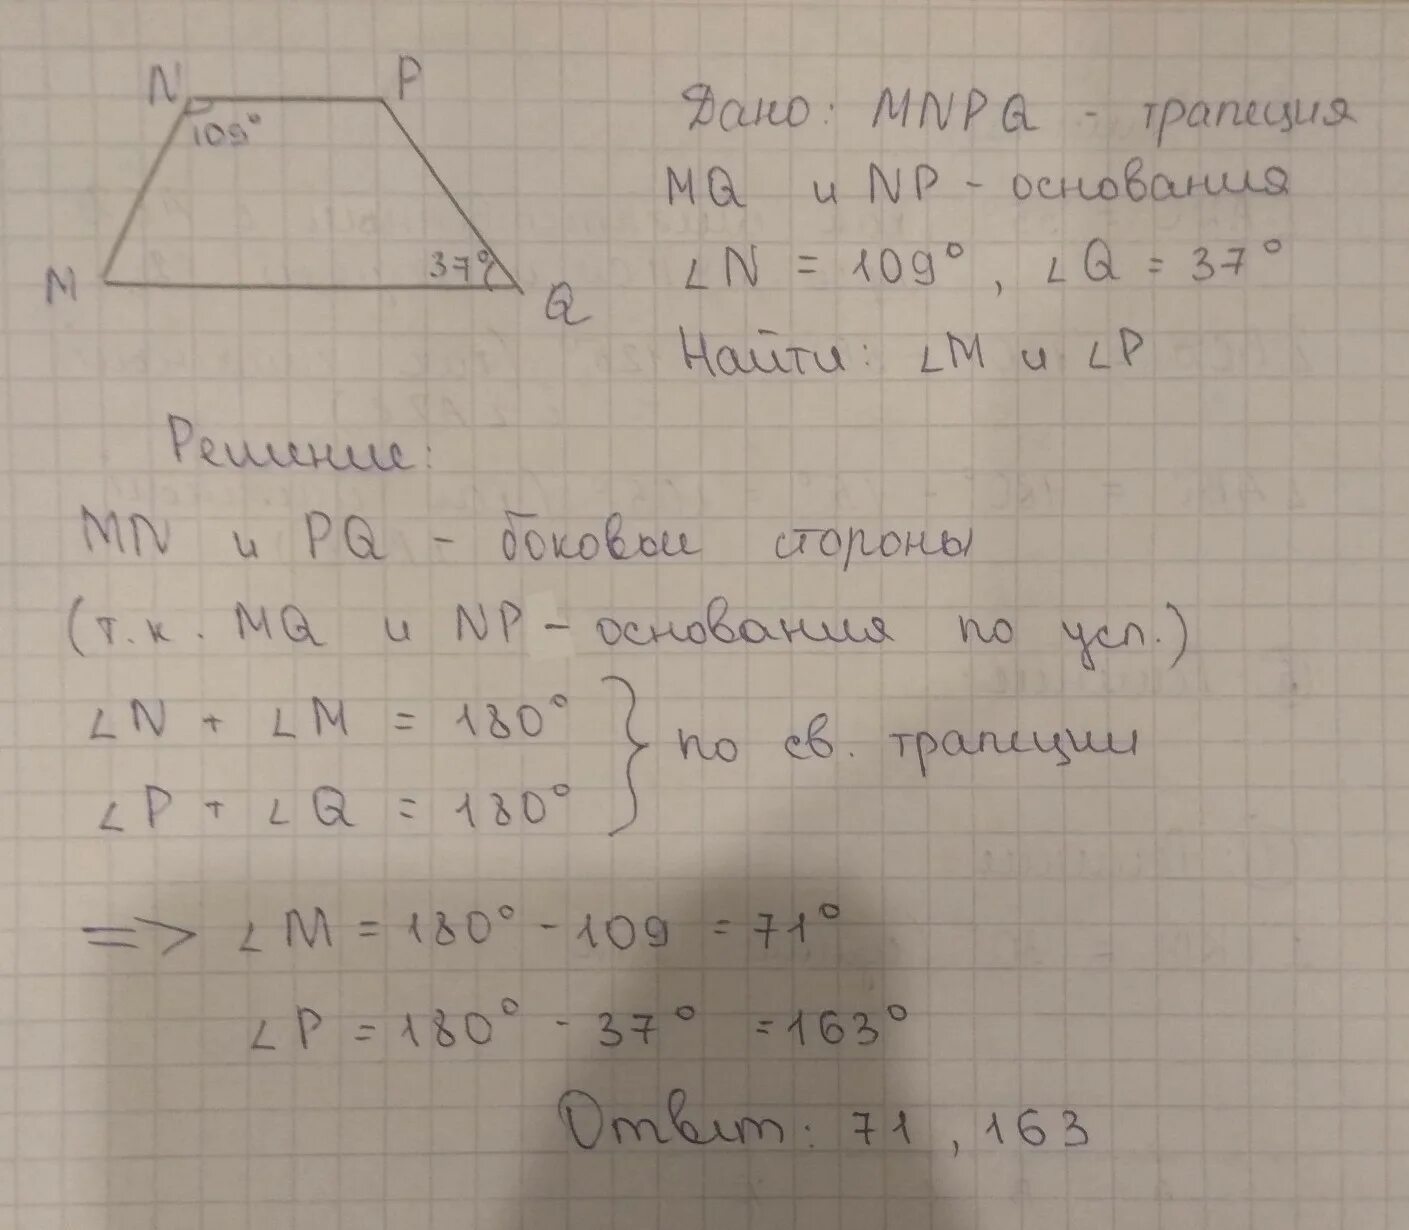 N P
109°
M 37° Q
Дано: MNPQ - трапеция
MQ и NP - основания
∠N = 109°, ∠Q = 37°
Найти: ∠M и ∠P
Решение:
MN и PQ - боковые стороны
(т.к. MQ и NP - основания по усл.)
∠N + ∠M = 180°
∠P + ∠Q = 180°
} по св. трапеции
=> ∠M = 180° - 109 = 71°
∠P = 180° - 37° = 163°
Ответ: 71, 163